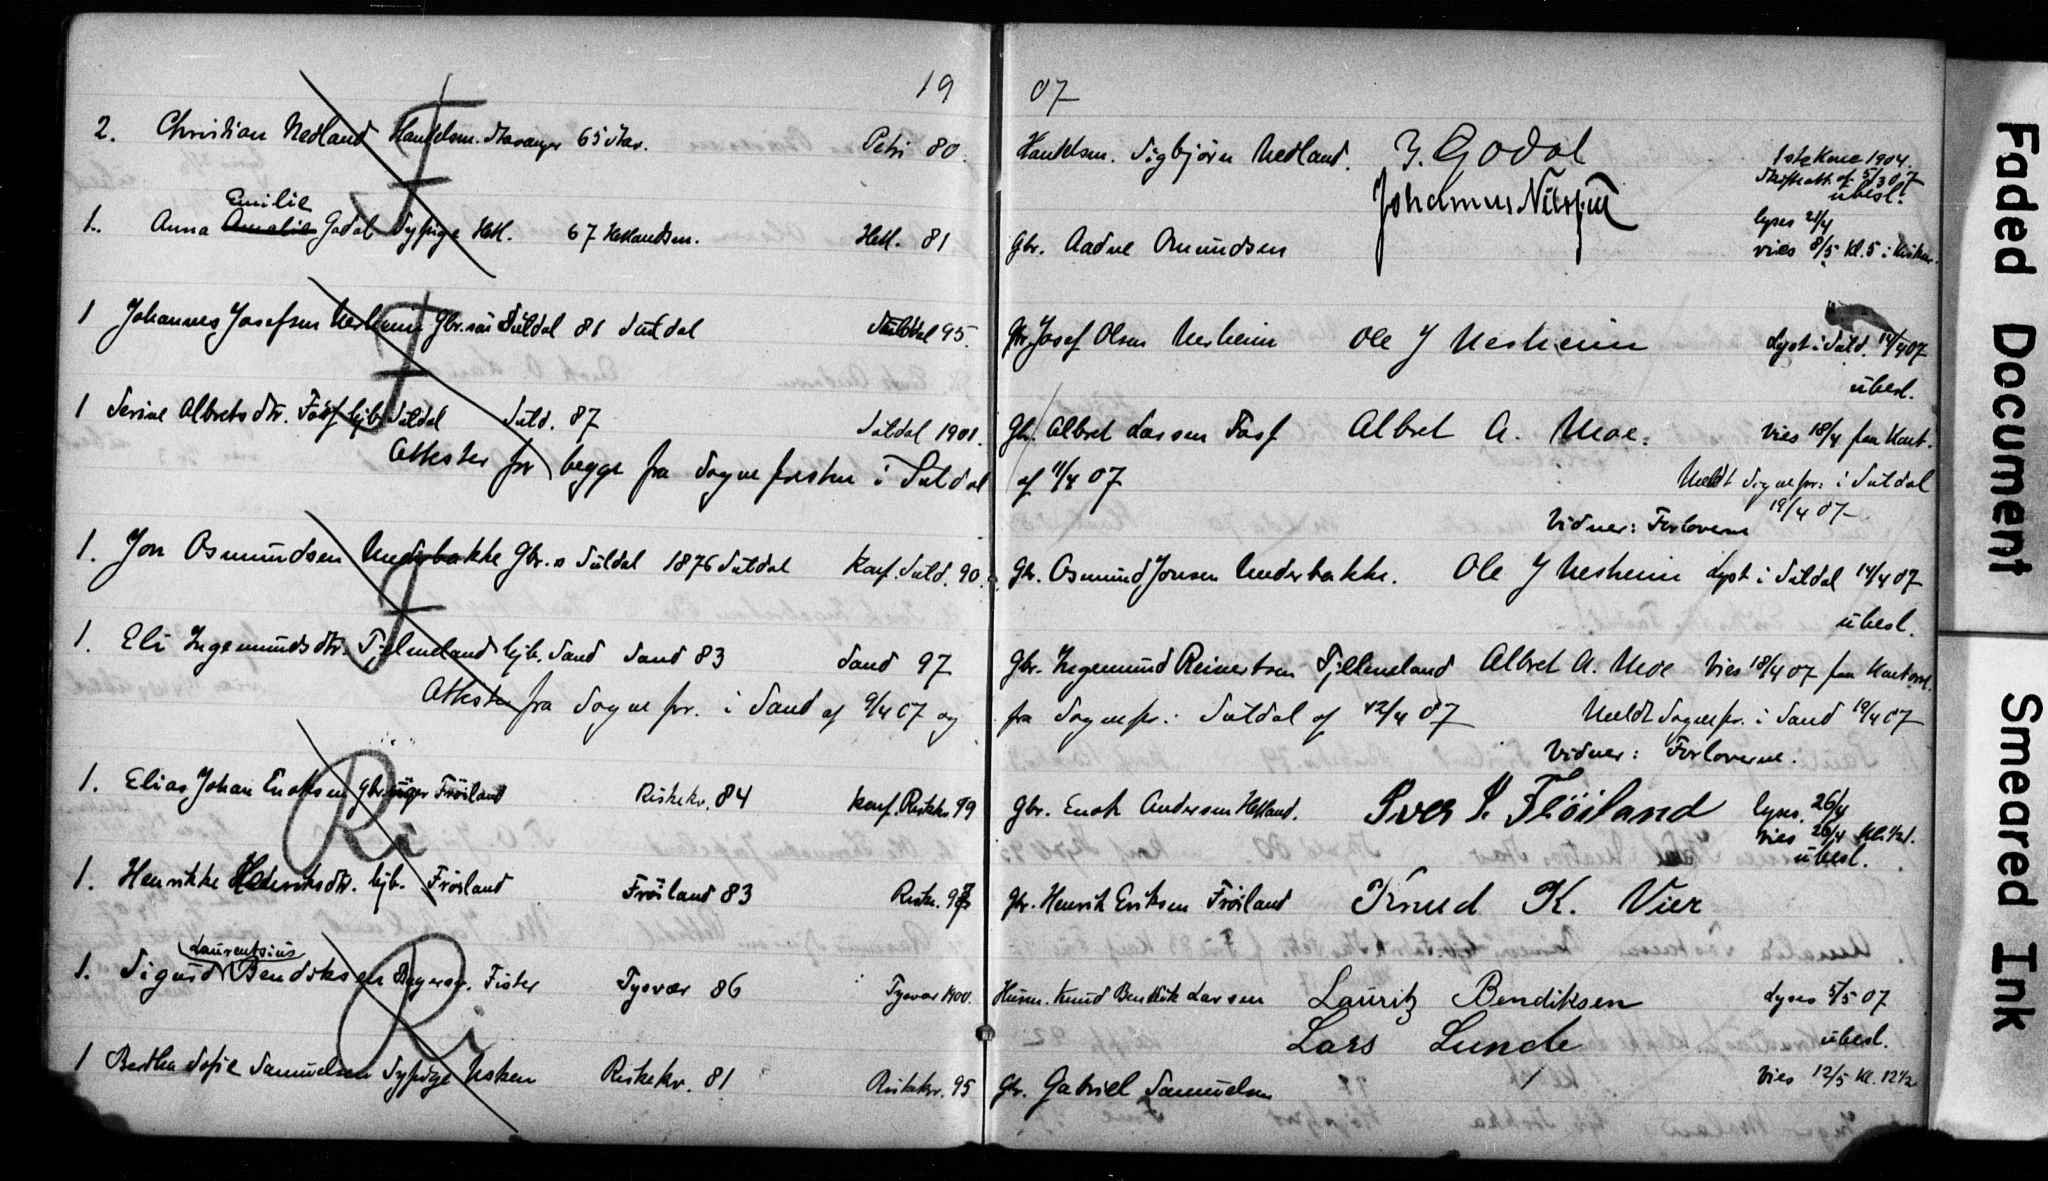 19 07
2. Christian Nedland Handelsm. Stavanger 65 Stav. Petri 80. Handelsm. Sigbjørn Nedland. Y. Godal 1ste Kone 1904.
Skifteatt. af 5/3 07
Johannes Nilsen ubesl.
Emilie lyses 21/4
1. Anna Amalie Godal Sypige Hetl. 67 Hetlandsm. Hetl. 81 Gbr. Aadne Omundsen vies 8/5 Kl. 5 i Kirken.
1 Johannes Josefsen Nesheim Gbr.søn Suldal 81 Suldal Suldal 95. Gbr. Josef Olsen Nesheim Ole J Nesheim Lyst i Suld. 14/4 07
ubesl.
1 Serine Albretsdtr. Fosf hjb. Suldal Suld. 87 Suldal 1901. Gbr. Albret Larsen Fosf Albret A. Moe. Vies 18/4 paa Kont.
Attester for begge fra Sognepresten i Suldal af 11/4 07 Meldt Sognepr. i Suldal
19/4 07
Vidner: Forloverne
1. Jon Osmundsen Underbakke Gbr. s Suldal 1876 Suldal Konf. Suld. 90. Gbr. Osmund Jonsen Underbakke. Ole J Nesheim Lyst i Suldal 14/4 07
ubesl.
1. Eli Ingemundsdtr. Tjelmeland hjb. Sand Sand 83 Sand 97 Gbr. Ingemund Reinertsen Tjelmeland Albret A. Moe Vies 18/4 07 paa Kontoret.
Attester fra Sognepr. i Sand af 9/4 07 og fra Sognepr. i Suldal af 12/4 07 Meldt Sognepr. i Sand 19/4 07
Vidner: Forloverne.
1. Elias Johan Enoksen Gbruger Fröiland Riskekv. 84 Konf. Riskekv. 99 Gbr. Enok Andersen Hetland. Iver I. Fröiland lyses 26/4
vies 26/4 Kl. 1/2 1.
ubesl.
1. Henrikke Henriksdtr. hjb. Fröiland Fröiland 83 Riskv. 97 Gbr. Henrik Eriksen Fröiland Knud K. Vier
Laurentsius
1. Sigurd Bendiksen Bagersv. Fister Tysvær 86 Tysvær 1900. Husm. Knud Bendik Larsen Lauritz Bendiksen Lyses 5/5 07
Lars Lunde ubesl.
1 Bertha Sofie Samuelsen Sypige Usken Riskekv. 81 Riskekv. 95 Gbr. Gabriel Samuelsen Vies 12/5 Kl. 12 1/2
F
F
F
Ri
Ri
Faded Document
Smeared Ink